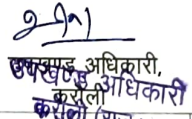 उपखण्ड अधिकारी,
करौली
उपखण्ड अधिकारी
करौली